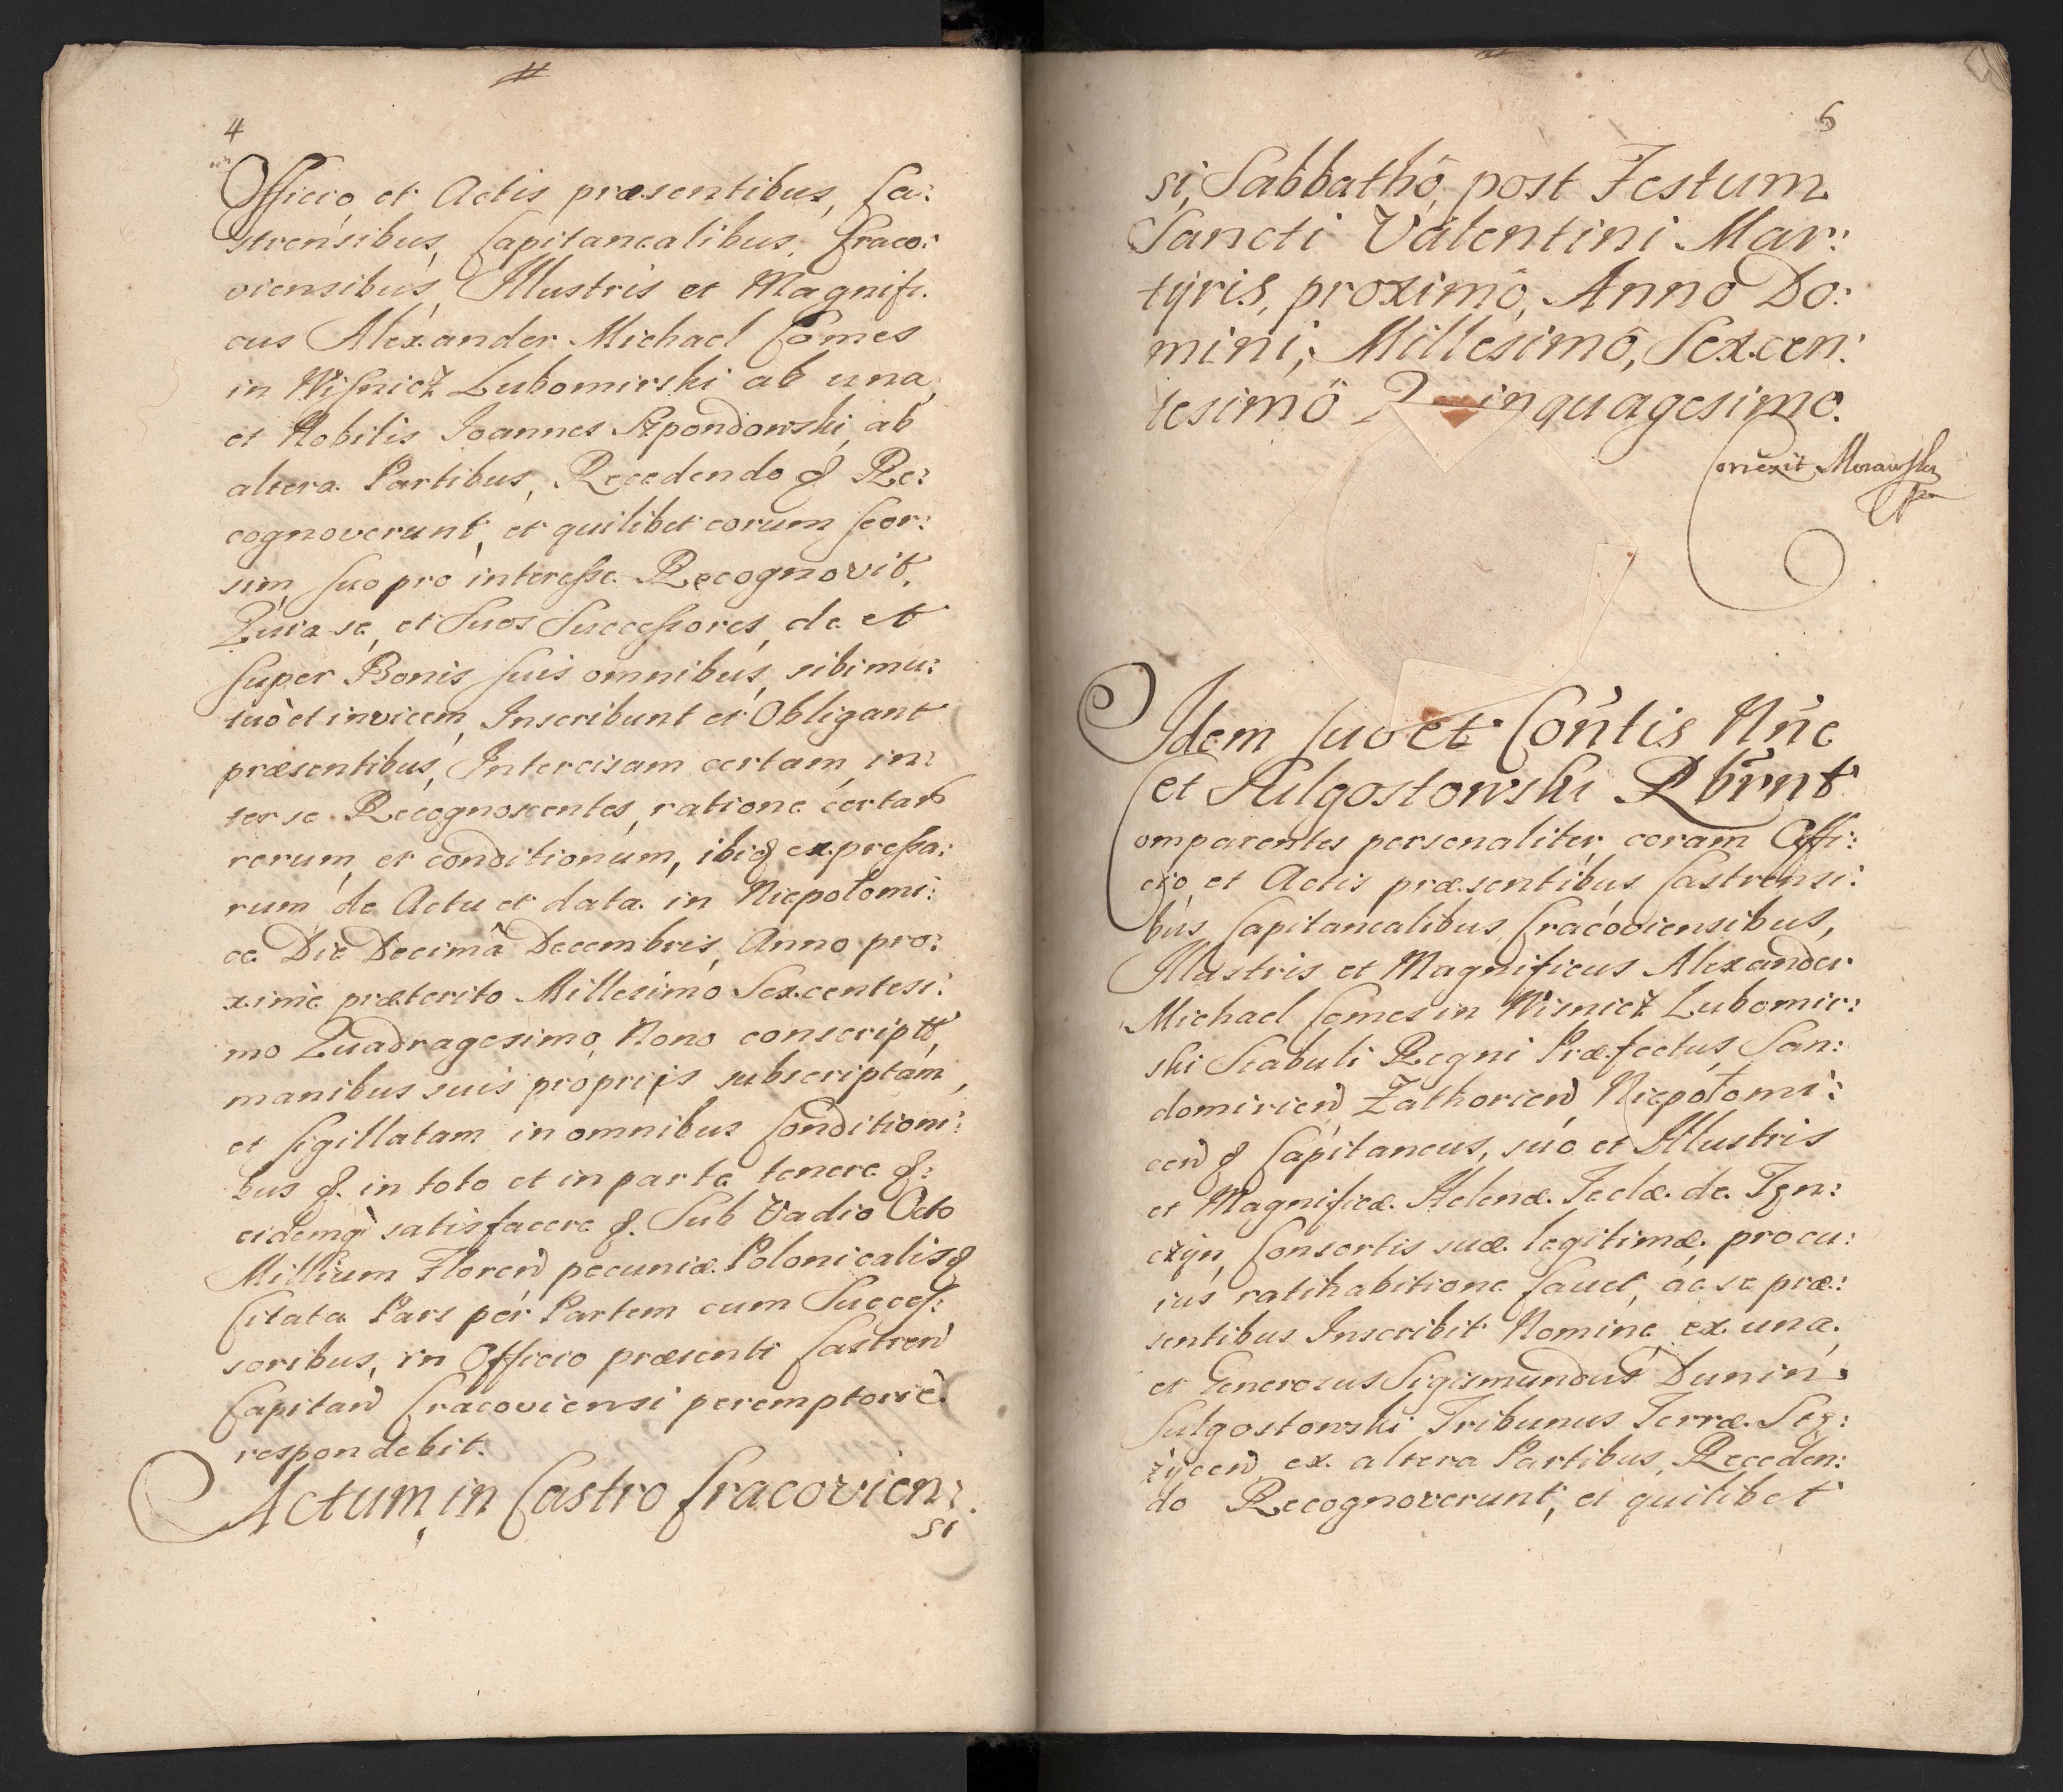 4
Officio, et Actis præsentibus, Ca:
strensibus, Capitanealibus, Craco:
viensibus, Illustris et Magnifi:
cus Alexander Michael Comes
in Wiſnicz Lubomirski ab una,
et Nobilis Joannes Szpondowski, ab
altera Partibus, Recedendo & Re:
cognoverunt, et quilibet eorum ſeor:
sim ſuo pro intereſse Recognovit.
Quia se, et Suos Succeſsores, de et
ſuper Bonis ſuis omnibus, sibi mu:
tuò et invicem, Inscribunt et Obligant
præsentibus, Intercisam certam, in:
ter se Recognoscentes, ratione certar
rerum, et conditionum, ibiq expreſsa:
rum, de Actu et data in Niepołomi:
ce Die Decimâ Decembris, Anno pro:
ximè præterito Millesimo Sexcentesi:
mo Quadragesimo, Nono conscript,
manibus suis proprijs subscriptam,
et ſigillatam in omnibus Conditioni:
bus &. in toto et in parte tenere &:
eidemq satisfacere &. Sub Vadio Octo
Millium Floren pecuniæ Polonicalis &
Citata Pars per Partem cum Succeſ:
soribus, in Officio præsenti Castren
Capitan Cracoviensi peremptoriè
respondebit.
Actum, in Castro Cracovien:
si
6
si, Sabbathô, post Festum
Sancti Valentini Mar:
tÿris, proximô, Anno Do:
mini, Millesimô, Sexcen:
tesimô Quinquagesimo.
Correxit Morawſki
mp
Idem ſuo et Coñtis Nñe
et Sulgostowski Rbrnt
Comparentes personaliter, coram Offi:
cio, et Actis præsentibus Castrensi:
bus, Capitanealibus, Cracoviensibus,
Illustris et Magnificus Alexander
Michael Comes in Wisnicz Lubomir:
ski Stabuli Regni Præfectus, San:
domirien Zathorien, Niepołomi:
cen & Capitaneus, suo et Illustris
et Magnificæ Helenæ Teclæ de Tęn:
czÿn, Consortis suæ legitimæ, pro cu:
ius ratihabitione Cauet, ac se præ:
sentibus Inscribit Nomine ex una,
et Generosus Sigismundus Dunin,
Sulgostowski Tribunus Terræ Stę:
żÿcen ex altera Partibus, Receden:
do Recognoverunt, et quilibet